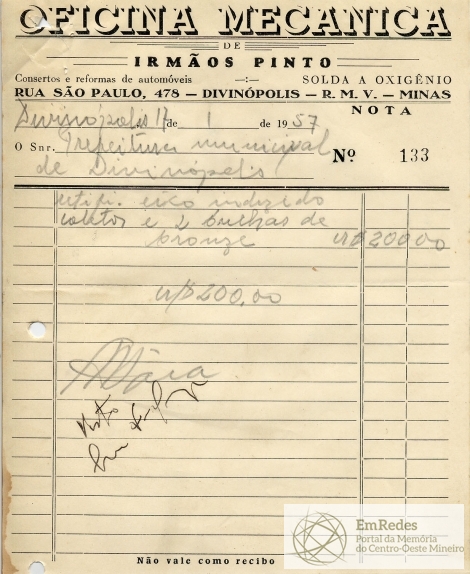 OFICINA MECANICA
DE
IRMÃOS PINTO
Consertos e reformas de automóveis —:— SOLDA A OXIGÊNIO
RUA SÃO PAULO, 478 — DIVINÓPOLIS — R. M. V. — MINAS
NOTA
Divinópolis 17 de 1 de 1957
O Snr. Prefeitura municipal
de Divinópolis
Nº 133
e 2 buchas de
bronze cr$200,00
cr$200,00
Visto
Não vale como recibo
EmRedes
Portal da Memória
do Centro-Oeste Mineiro